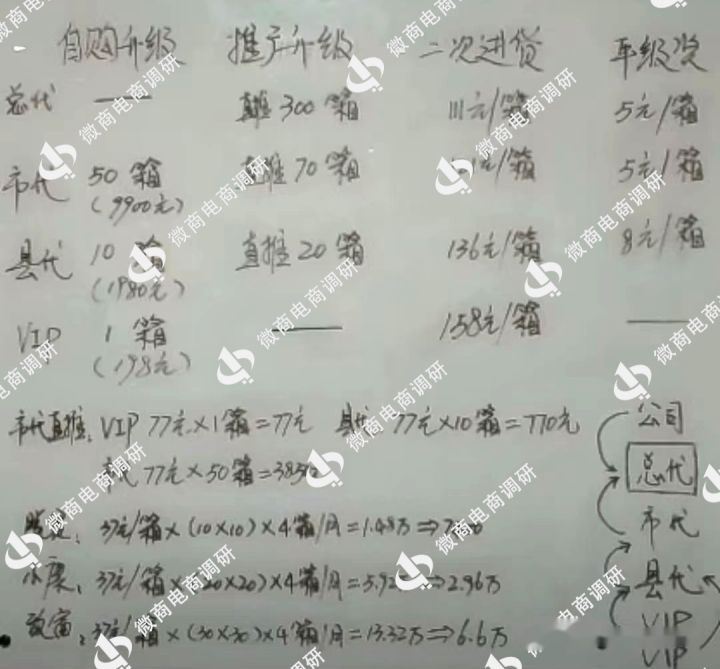 自购升级 推广升级 二次进货 平级奖
总代 — 直推300箱 111元/箱 5元/箱
市代 50箱 直推70箱 元/箱 5元/箱
(9900元)
县代 10箱 直推20箱 136元/箱 8元/箱
(1980元)
VIP 1箱 — 158元/箱 —
(198元)
市代直推: VIP 77元×1箱=77元 县代 77元×10箱=770元
市代 77元×50箱=3850
脱贫: 37元/箱×(10×10)×4箱/月=1.48万⇒
小康: 37元/箱×(20×20)×4箱/月=5.92⇒2.96万
致富: 37元/箱×(30×30)×4箱/月=13.32万⇒6.6万
公司
总代
市代
县代
VIP
VIP
微商电商调研